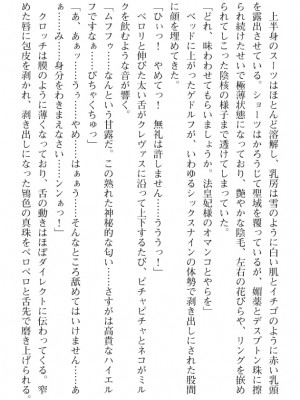 上半身のスーツはほとんど溶解し、乳房は雪のように白い肌とイチゴのように赤い乳頭
を露出させている。ショーツはかろうじて聖域を覆っているが、媚薬とデスプトン珠に擦
られ続けたせいで極薄状態になっており、艶やかな陰毛、左右の花びらや、リングを嵌め
られてしこった陰核の様子まで透けてしまっていた。
「どれ、味わわせてもらいましょうか。法皇妃様のオマンコとやらを」
ベッドに上がったゲドルフが、いわゆるシックスナインの体勢で剥き出しにされた股間
に顔を埋めてきた。
「ひぃっ！　やめてっ！　無礼は許しません……うううっ！」
ベロリと伸びた太い舌がクレヴァスに沿って上下するたび、ピチャピチャとネコがミル
クを飲むような音が響く。
「ムフフゥ……なんという甘露だ。この熟れた神秘的な匂い……さすがは高貴なハイエル
フですなぁ……ぴちゃくちゅっ」
「あ、あぁっ……うぅ……やめ……はぁぁっ……そんなところ舐めてはいけません……あ
ぁ……み……身分をわきまえなさい……ンンぁっ！」
クロッチは膜のように薄くなっており、舌の動きはほぼダイレクトに伝わってくる。窄
んに包皮を剥かれ、剥き出しになった鴇色の真珠をベロベロと舌先で磨き上げられる。